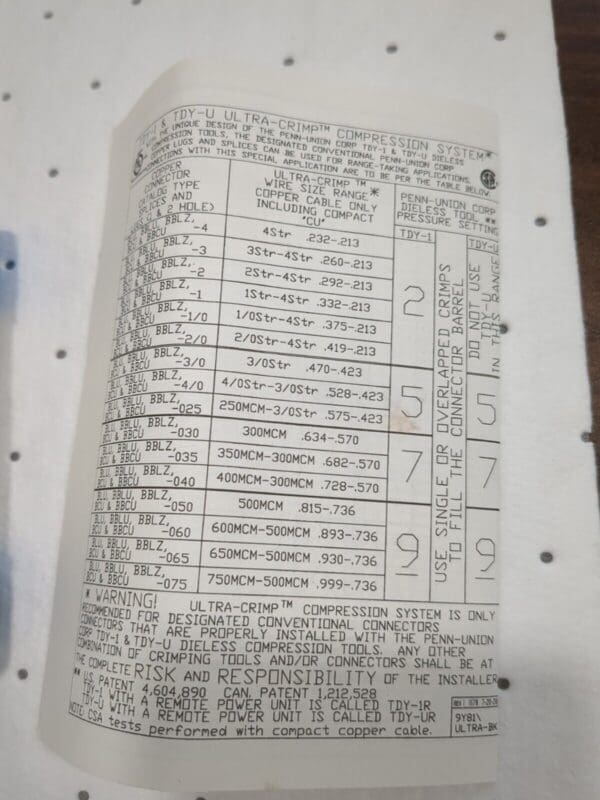 TDY-1 & TDY-U ULTRA-CRIMP™ COMPRESSION SYSTEM*
WITH THE UNIQUE DESIGN OF THE PENN-UNION CORP TDY-1 & TDY-U DIELESS
COMPRESSION TOOLS, THE DESIGNATED CONVENTIONAL PENN-UNION CORP
COPPER LUGS AND SPLICES CAN BE USED FOR RANGE-TAKING APPLICATIONS.
CONNECTIONS WITH THIS SPECIAL APPLICATION ARE TO BE PER THE TABLE BELOW.
COPPER
CONNECTOR
CATALOG TYPE
SPLICES AND
& 2 HOLE)
ULTRA-CRIMP™*
WIRE SIZE RANGE
COPPER CABLE ONLY
INCLUDING COMPACT
"CU"
PENN-UNION CORP
DIELESS TOOL **
PRESSURE SETTING
TDY-1
TDY-U
BBLZ,
& BBCU -4
4Str .232-.213
BLU, BBLU, BBLZ,
BCU & BBCU -3
3Str-4Str .260-.213
BLU, BBLU, BBLZ,
BCU & BBCU -2
2Str-4Str .292-.213
BLU, BBLU, BBLZ,
BCU & BBCU -1
1Str-4Str .332-.213
BLU, BBLU, BBLZ,
BCU & BBCU -1/0
1/0Str-4Str .375-.213
BLU, BBLU, BBLZ,
BCU & BBCU -2/0
2/0Str-4Str .419-.213
2
DO NOT USE
TDY-U
IN THIS RANGE
BLU, BBLU, BBLZ,
BCU & BBCU -3/0
3/0Str .470-.423
BLU, BBLU, BBLZ,
BCU & BBCU -4/0
4/0Str-3/0Str .528-.423
BLU, BBLU, BBLZ,
BCU & BBCU -025
250MCM-3/0Str .575-.423
5
5
BLU, BBLU, BBLZ,
BCU & BBCU -030
300MCM .634-.570
BLU, BBLU, BBLZ,
BCU & BBCU -035
350MCM-300MCM .682-.570
BLU, BBLU, BBLZ,
BCU & BBCU -040
400MCM-300MCM .728-.570
7
7
BLU, BBLU, BBLZ,
BCU & BBCU -050
500MCM .815-.736
BLU, BBLU, BBLZ,
BCU & BBCU -060
600MCM-500MCM .893-.736
BLU, BBLU, BBLZ,
BCU & BBCU -065
650MCM-500MCM .930-.736
BLU, BBLU, BBLZ,
BCU & BBCU -075
750MCM-500MCM .999-.736
9
9
USE SINGLE OR OVERLAPPED CRIMPS
TO FILL THE CONNECTOR BARREL
* WARNING! ULTRA-CRIMP™ COMPRESSION SYSTEM IS ONLY
RECOMMENDED FOR DESIGNATED CONVENTIONAL CONNECTORS
CONNECTORS THAT ARE PROPERLY INSTALLED WITH THE PENN-UNION
CORP TDY-1 & TDY-U DIELESS COMPRESSION TOOLS. ANY OTHER
COMBINATION OF CRIMPING TOOLS AND/OR CONNECTORS SHALL BE AT
THE COMPLETE RISK AND RESPONSIBILITY OF THE INSTALLER
** U.S. PATENT 4,604,890 CAN. PATENT 1,212,528
TDY-1 WITH A REMOTE POWER UNIT IS CALLED TDY-1R
TDY-U WITH A REMOTE POWER UNIT IS CALLED TDY-UR
NOTE: CSA tests performed with compact copper cable.
9Y81\
ULTRA-BK